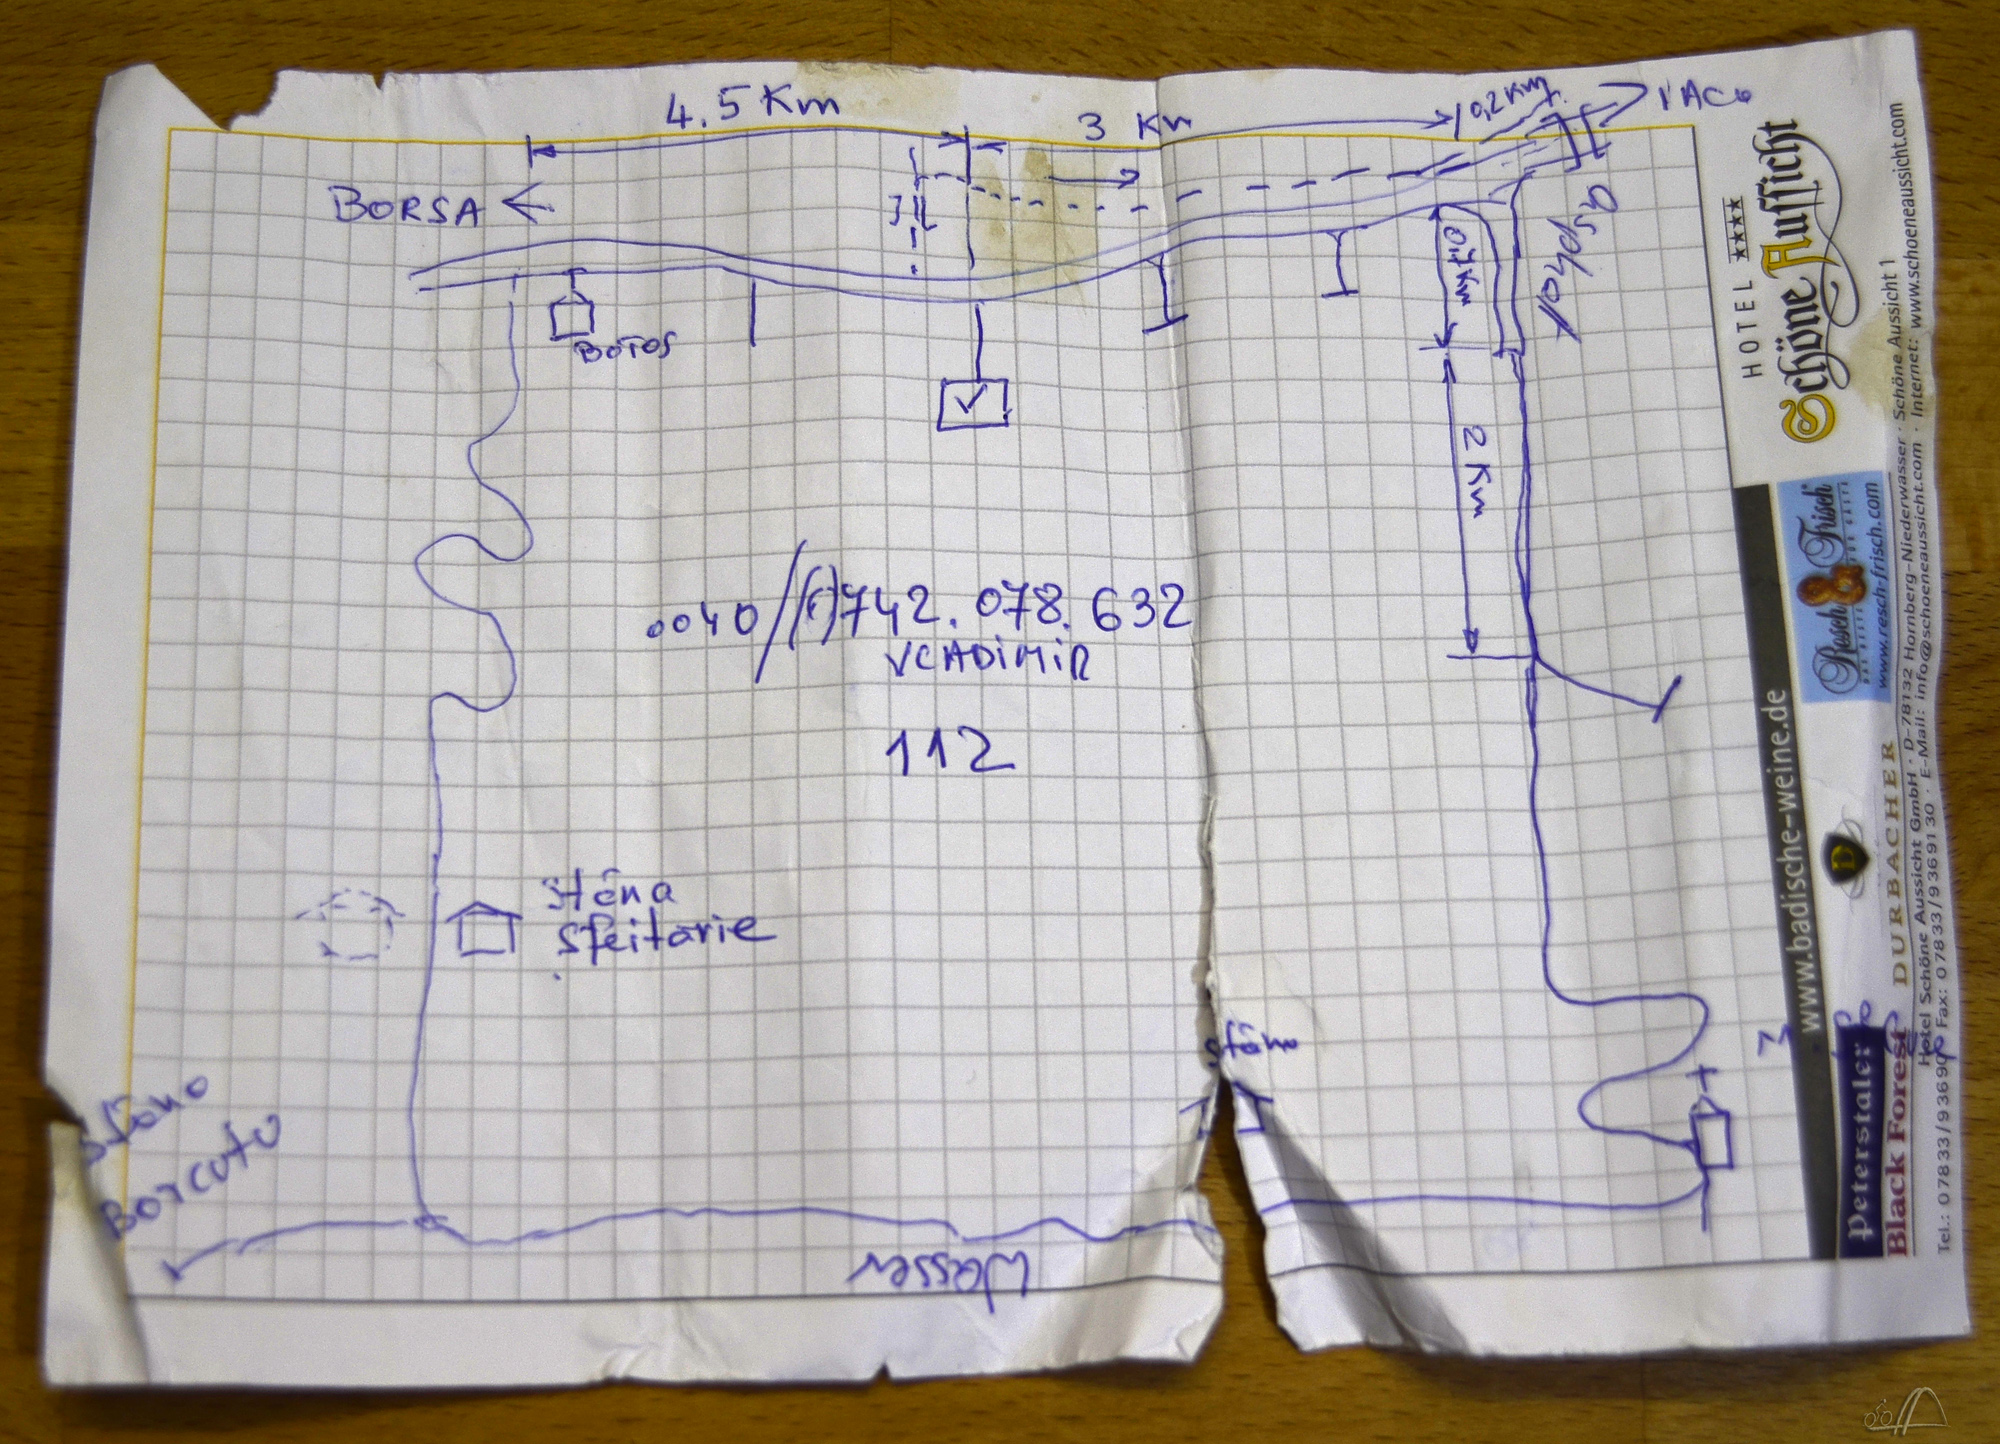 4.5 Km
3 Km
0,2 Km
BORSA
BOTOS
0,4 Km
2 Km
0040/(0)742.078.632
VLADIMIR
112
stâna
Sfeitarie
stâna
stâna
Borcuto
Wasser
HOTEL ★★★★
Schöne Aussicht
Resch & Frisch
www.resch-frisch.com
www.badische-weine.de
D
DURBACHER
Peterstaler
Black Forest
Hotel Schöne Aussicht GmbH · D-78132 Hornberg-Niederwasser · Schöne Aussicht 1
Tel.: 07833/93690 Fax: 07833/9369130 · E-Mail: info@schoeneaussicht.com · Internet: www.schoeneaussicht.com